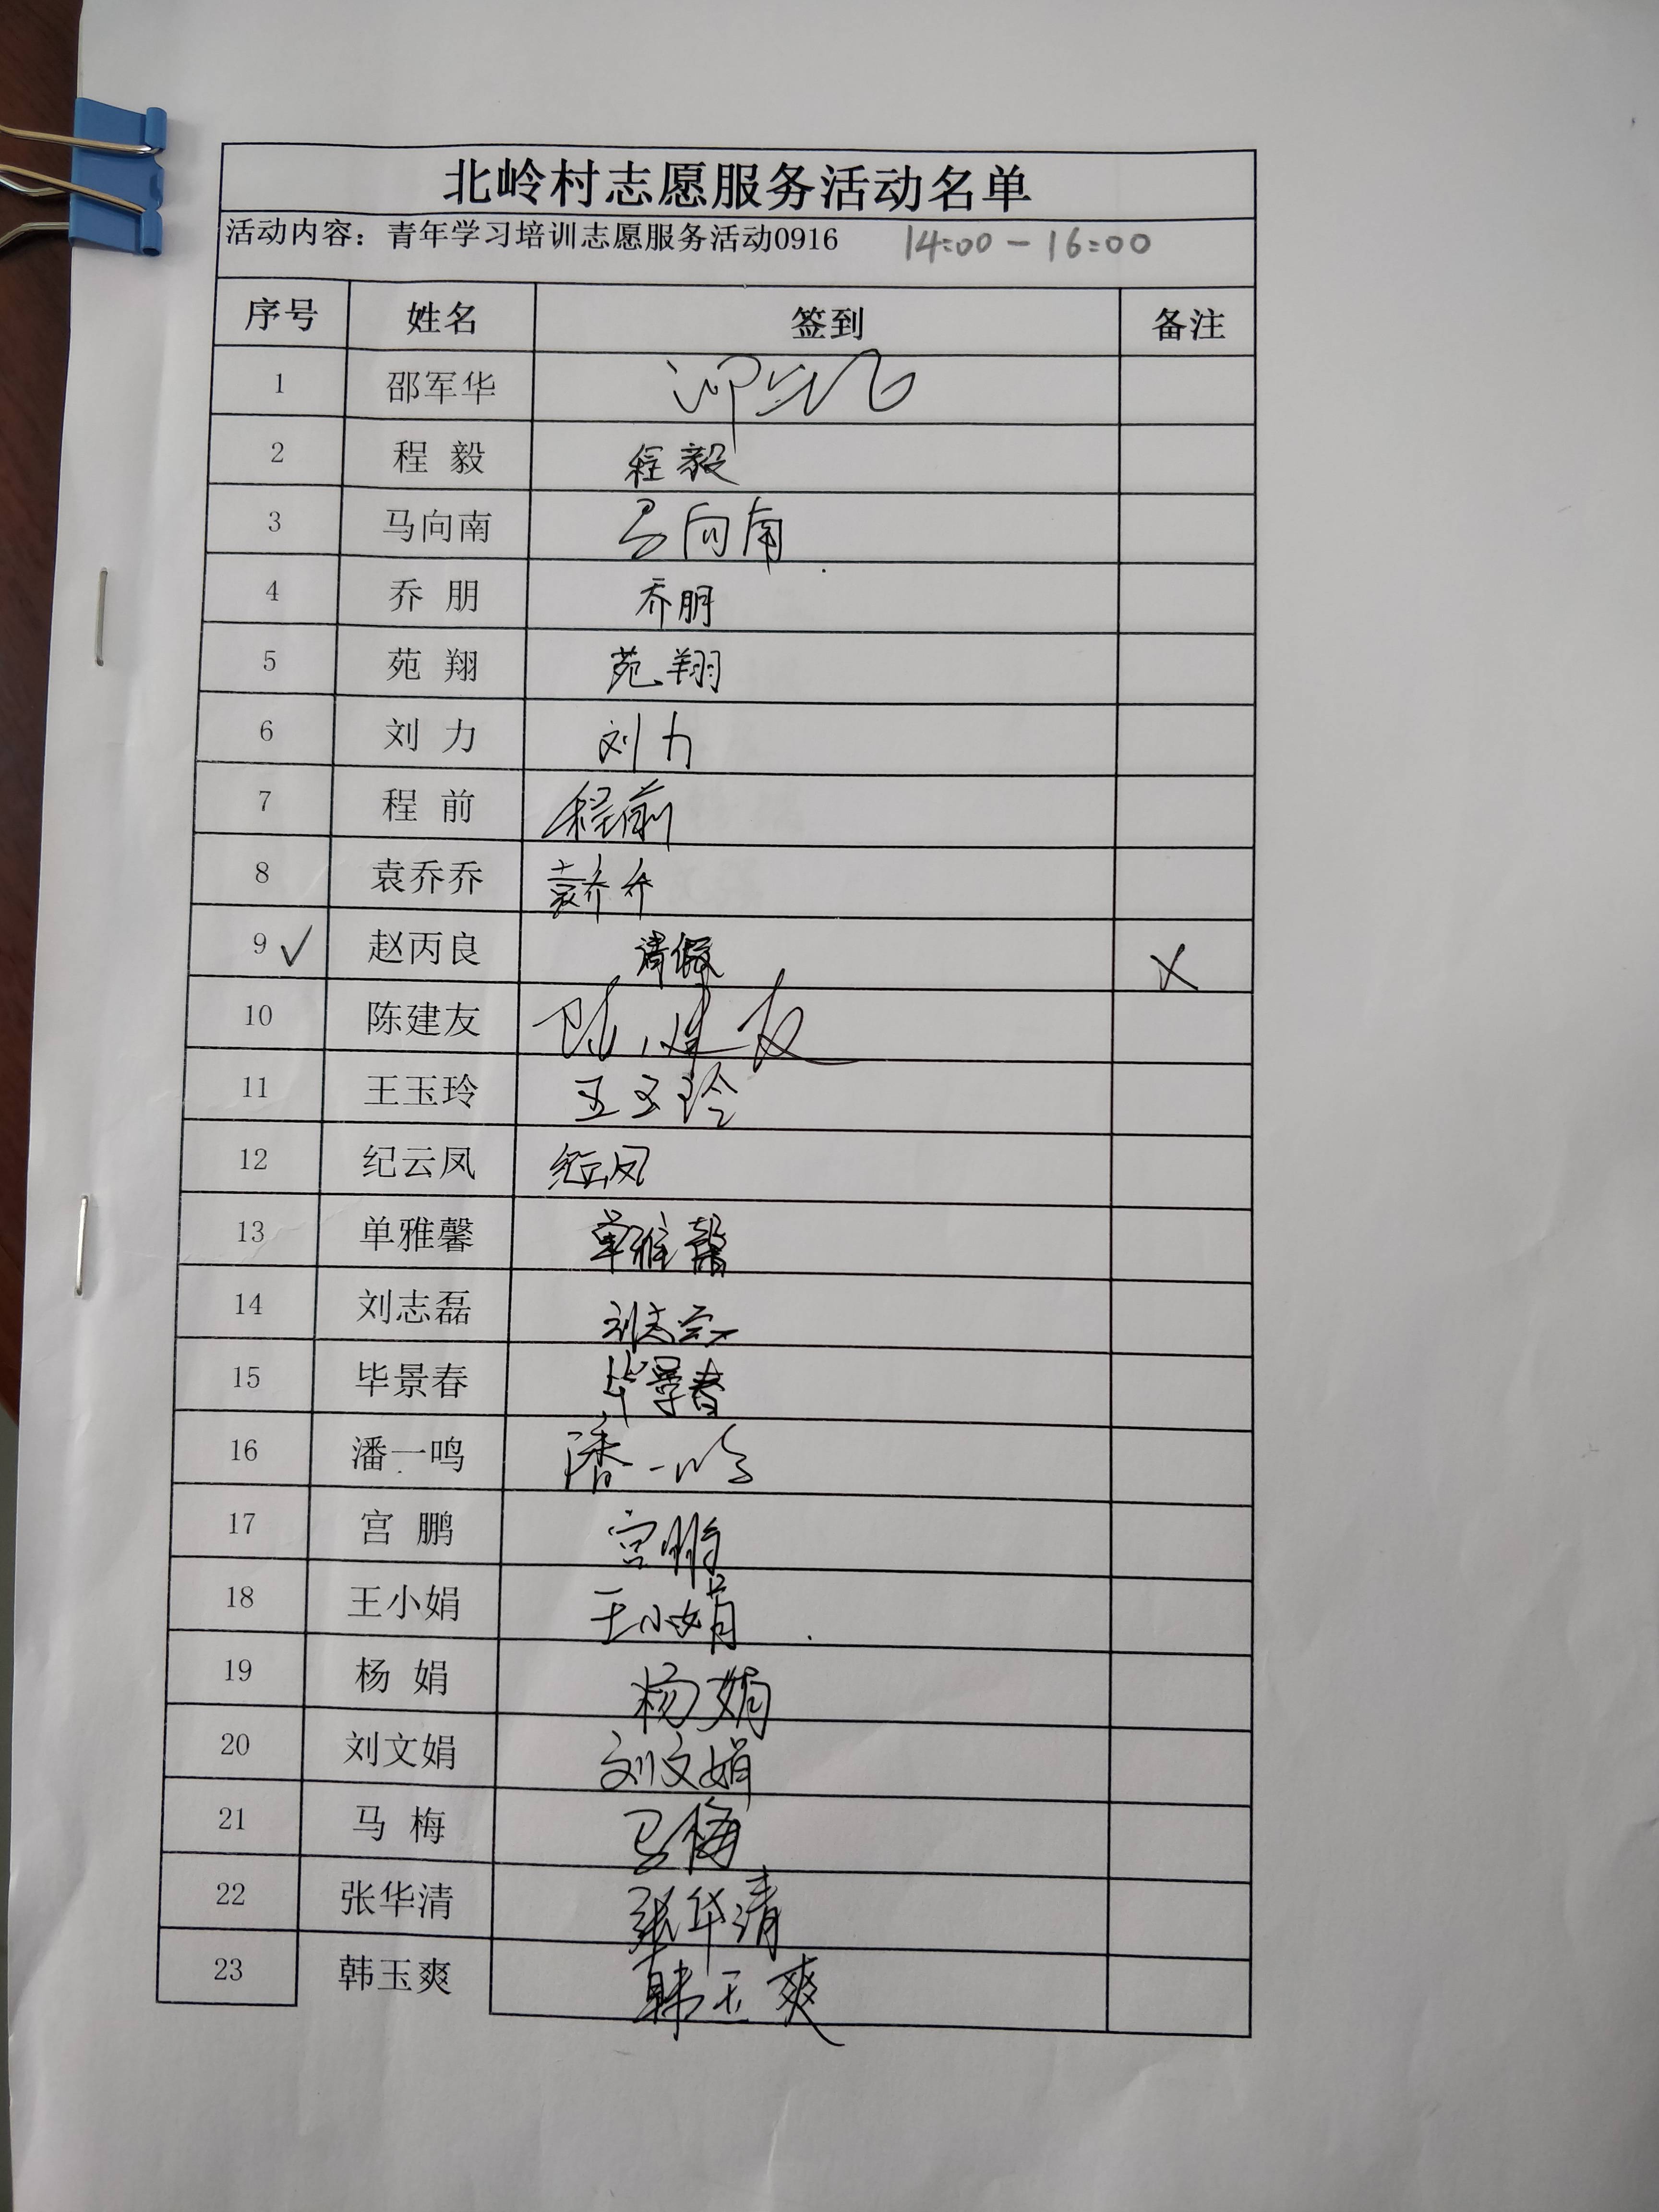 北岭村志愿服务活动名单
活动内容：青年学习培训志愿服务活动0916 14:00-16:00
序号 姓名 签到 备注
1 邵军华
2 程毅 程毅
3 马向南 马向南
4 乔朋 乔朋
5 苑翔 苑翔
6 刘力 刘力
7 程前 程前
8 袁乔乔 袁乔乔
9 ✓ 赵丙良 请假 ×
10 陈建友 陈建友
11 王玉玲 王玉玲
12 纪云凤 纪云凤
13 单雅馨 单雅馨
14 刘志磊 刘志磊
15 毕景春 毕景春
16 潘一鸣 潘一鸣
17 宫鹏 宫鹏
18 王小娟 王小娟
19 杨娟 杨娟
20 刘文娟 刘文娟
21 马梅 马梅
22 张华清 张华清
23 韩玉爽 韩玉爽